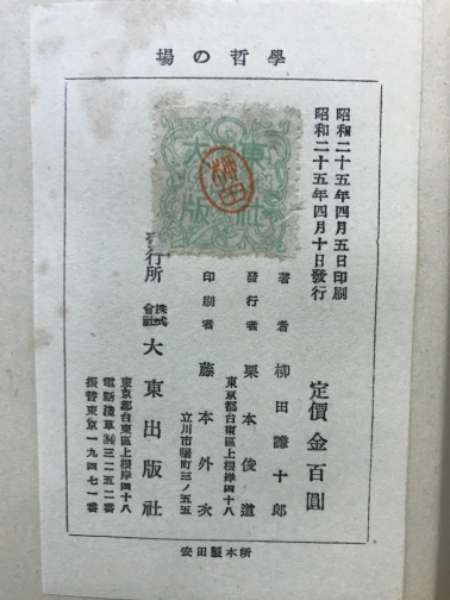 場の哲學
昭和二十五年四月五日印刷
昭和二十五年四月十日發行
定價金百圓
著者 柳田謙十郎
發行者 栗本俊道
東京都台東區上根岸四十八
印刷者 藤本外次
立川市曙町三ノ五五
發行所 株式會社 大東出版社
東京都台東區上根岸四十八
電話淺草(84)三二五二番
振替東京一九四七一番
安田製本所
大東
版社